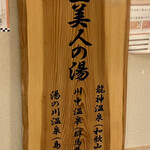 美人の湯
龍神温泉(和歌山
川中温泉(群馬
湯の川温泉(島